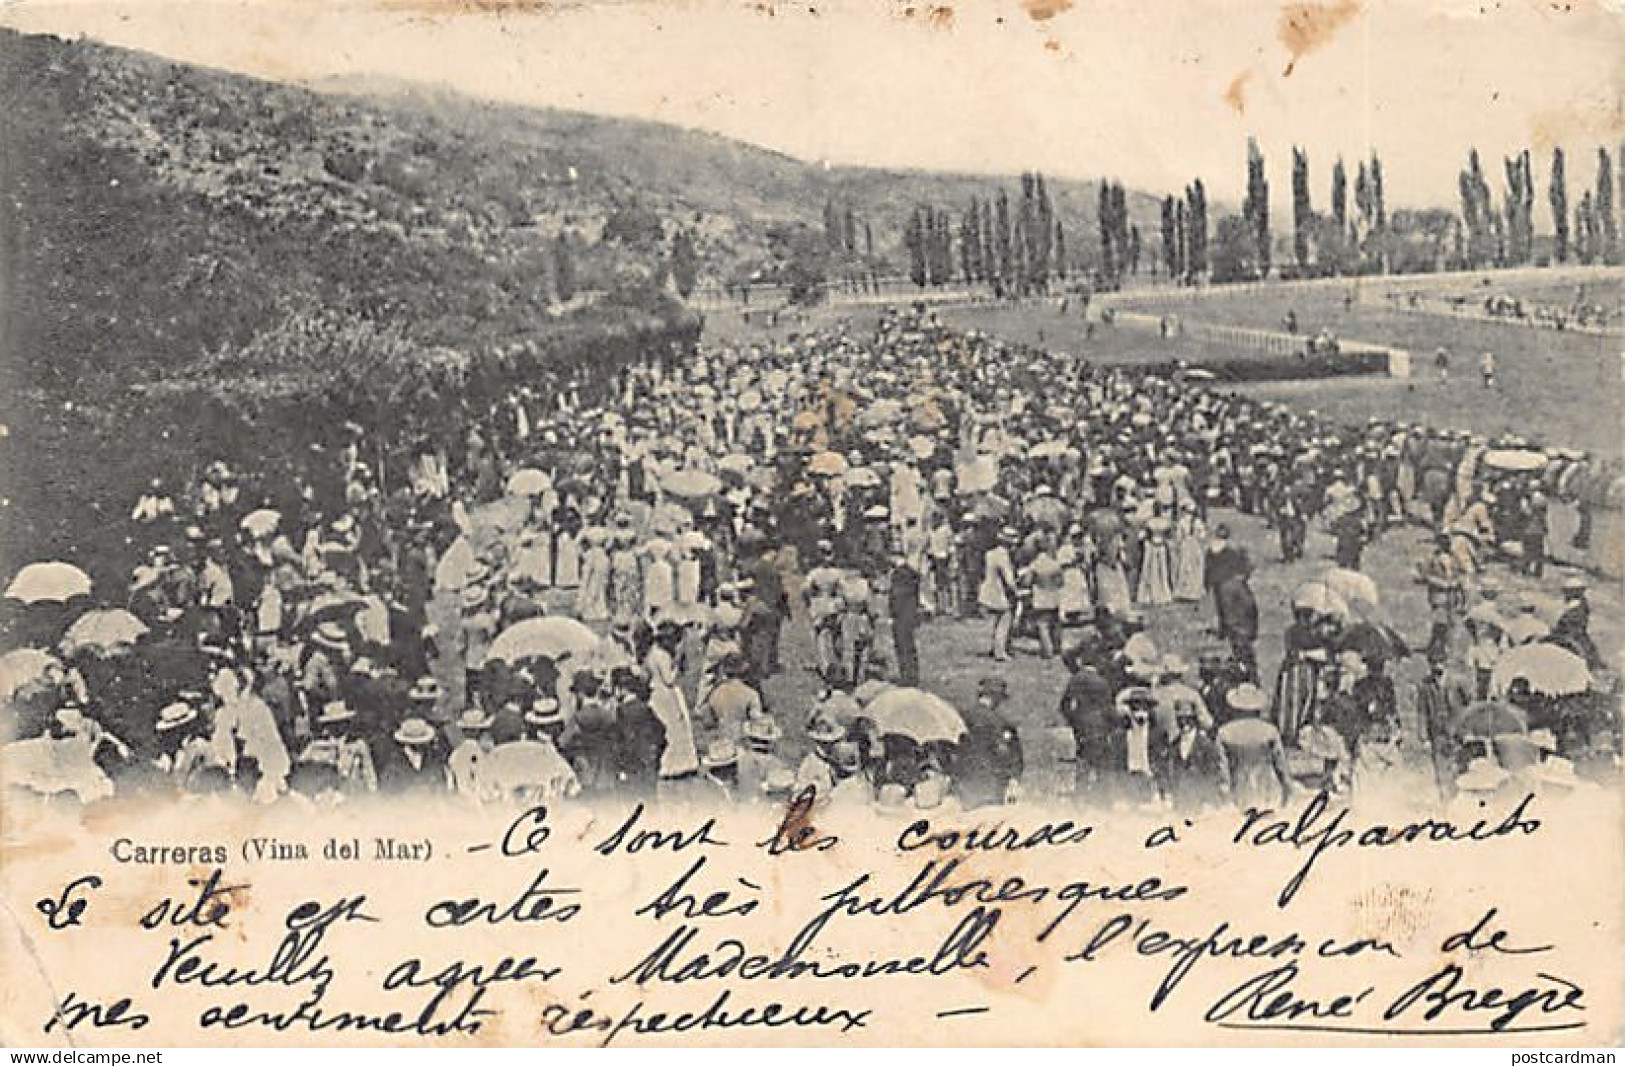 Carreras (Vina del Mar) - Ce sont les courses à Valparaiso
Le site est certes très pittoresques
Veuillez agréer Mademoiselle, l'expression de
mes sentiments respectueux -
René Bregre
postcardman